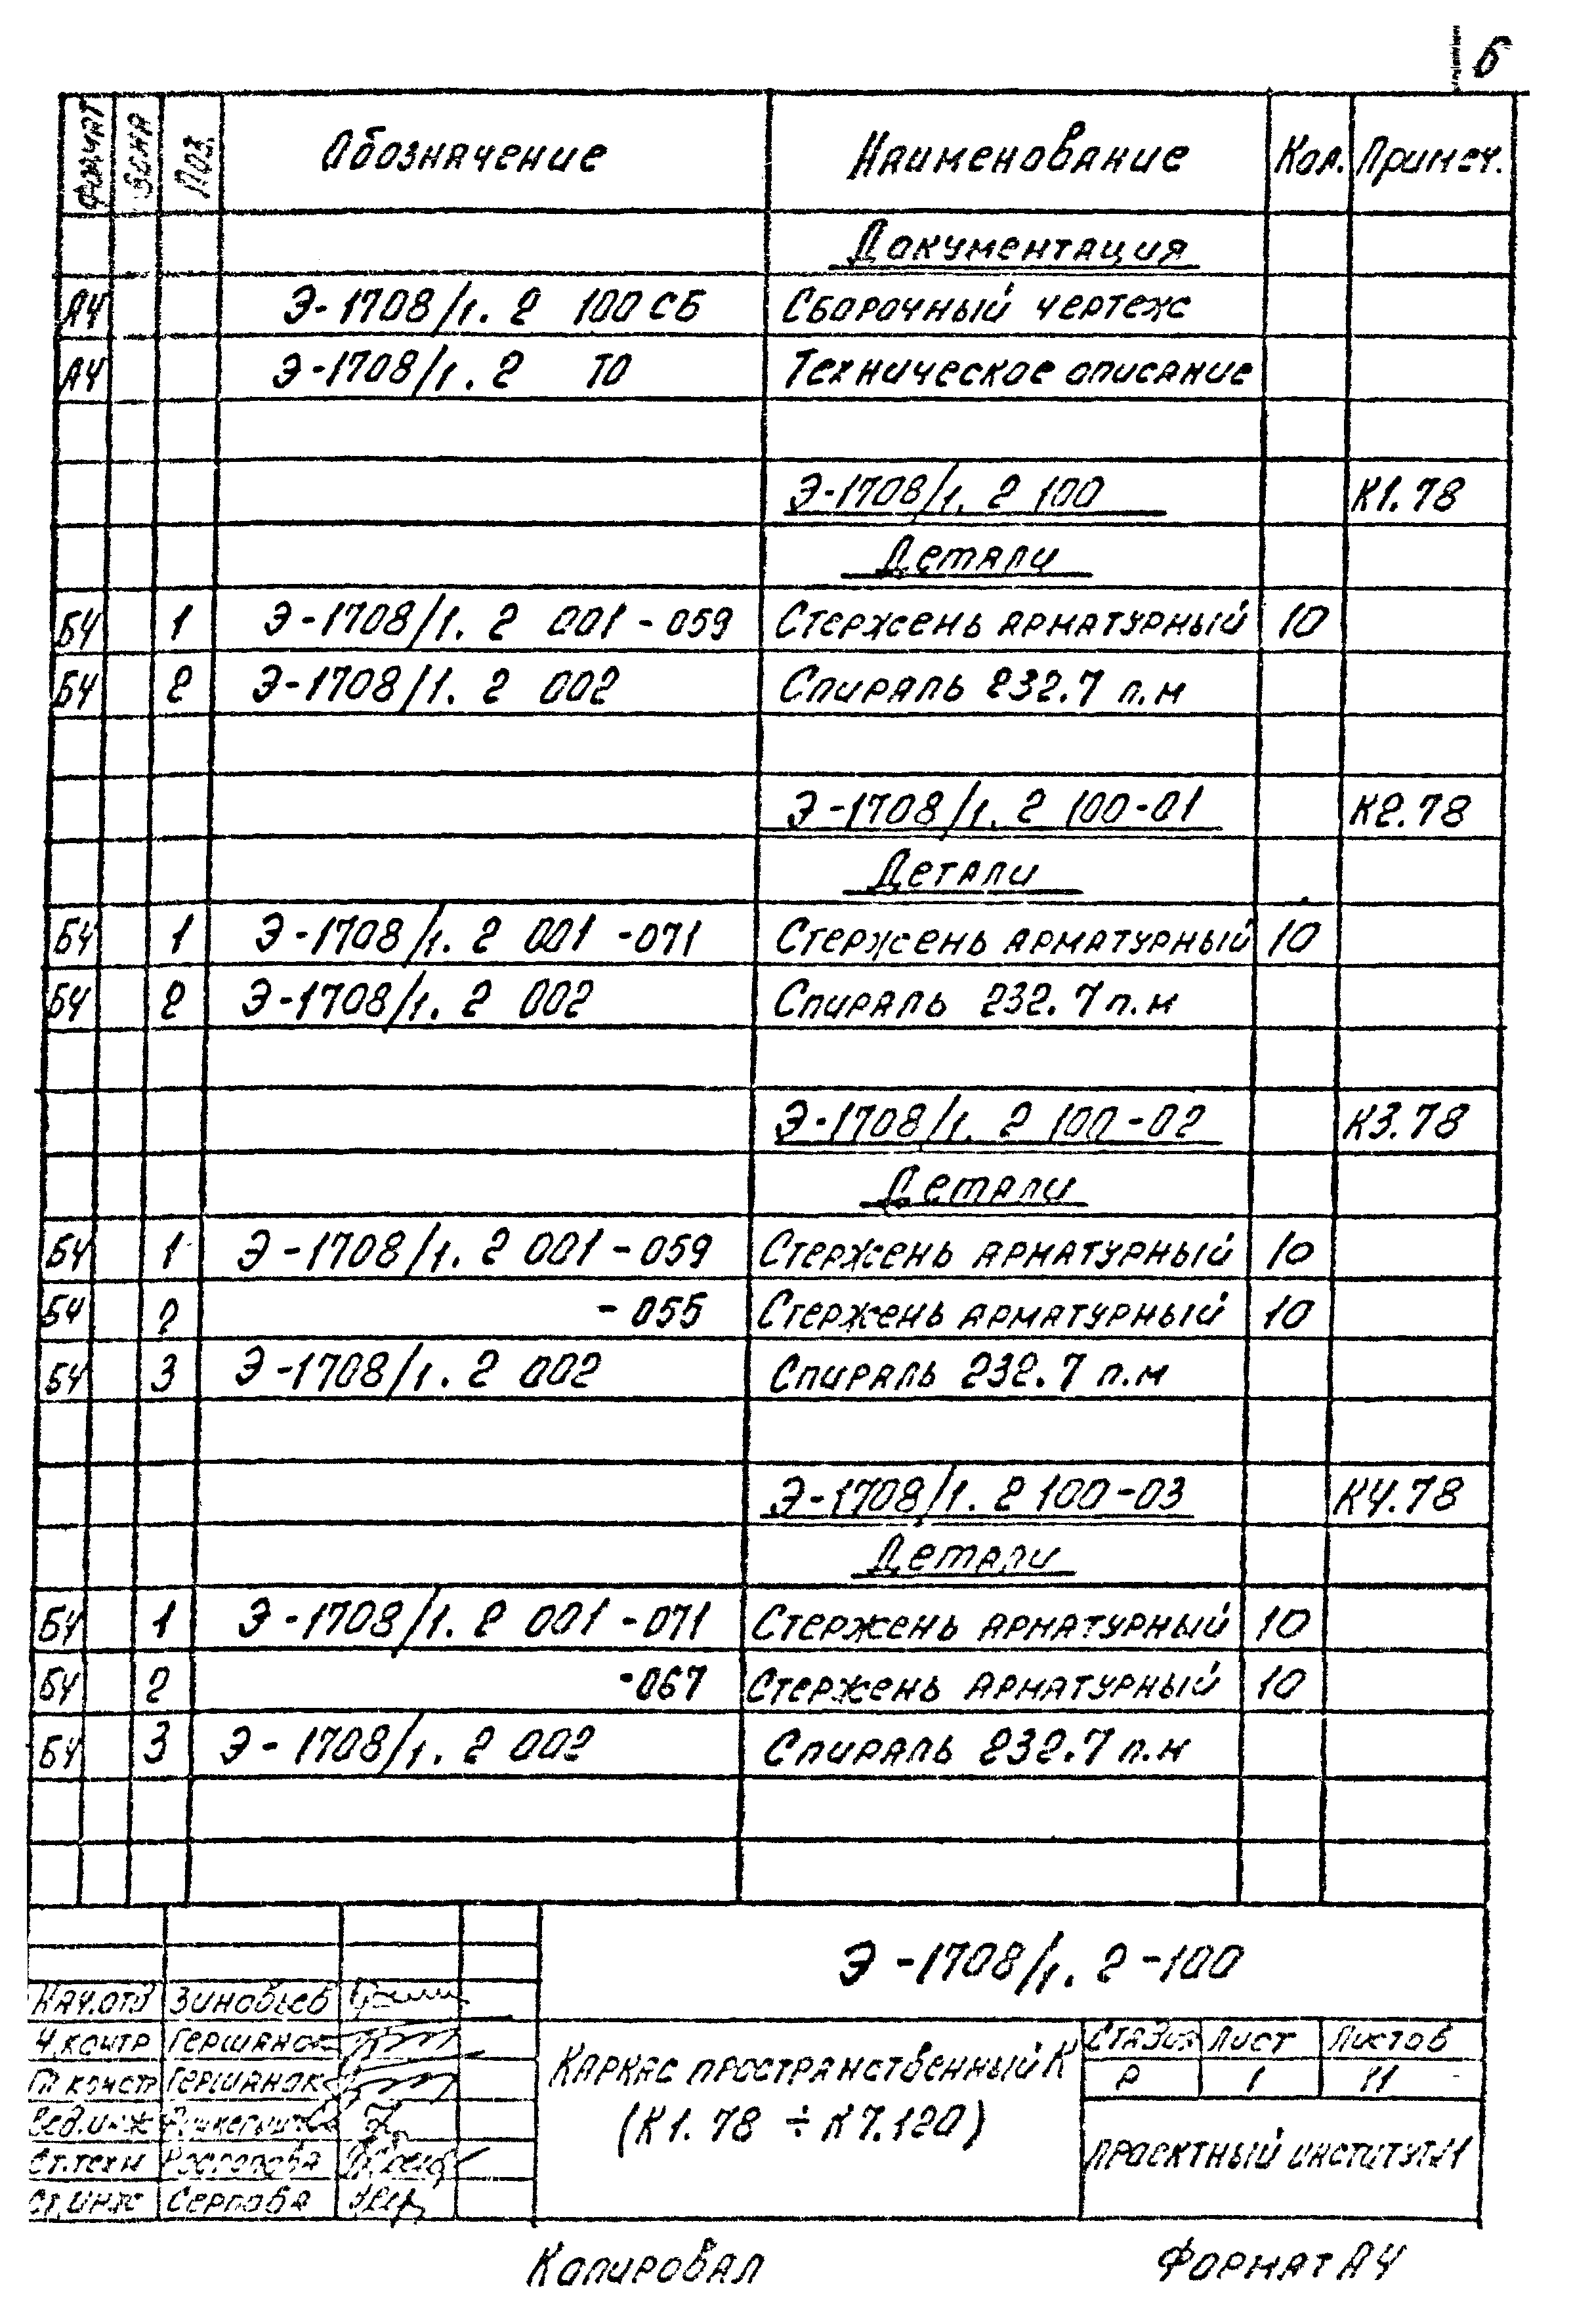 6
Формат Зона Поз. Обозначение Наименование Кол. Примеч.
Документация
А4 Э-1708/1. 2 100 СБ Сборочный чертеж
А4 Э-1708/1. 2 ТО Техническое описание
Э-1708/1. 2 100 К1.78
Детали
Б4 1 Э-1708/1. 2 001-059 Стержень арматурный 10
Б4 2 Э-1708/1. 2 002 Спираль 232.7 п.м
Э-1708/1. 2 100-01 К2.78
Детали
Б4 1 Э-1708/1. 2 001-071 Стержень арматурный 10
Б4 2 Э-1708/1. 2 002 Спираль 232.7 п.м
Э-1708/1. 2 100-02 К3.78
Детали
Б4 1 Э-1708/1. 2 001-059 Стержень арматурный 10
Б4 2 -055 Стержень арматурный 10
Б4 3 Э-1708/1. 2 002 Спираль 232.7 п.м
Э-1708/1. 2 100-03 К4.78
Детали
Б4 1 Э-1708/1. 2 001-071 Стержень арматурный 10
Б4 2 -067 Стержень арматурный 10
Б4 3 Э-1708/1. 2 002 Спираль 232.7 п.м
Э-1708/1. 2-100
Нач.отд Зиновьев
Н.контр Гершанок
Гл констр Гершанок
Вед.инж
Ст.техн
Ст.инж Серпова
Каркас пространственный К
(К1.78 ÷ К7.120)
Стадия Лист Листов
Р 1 11
Проектный институт №1
Копировал Формат А4